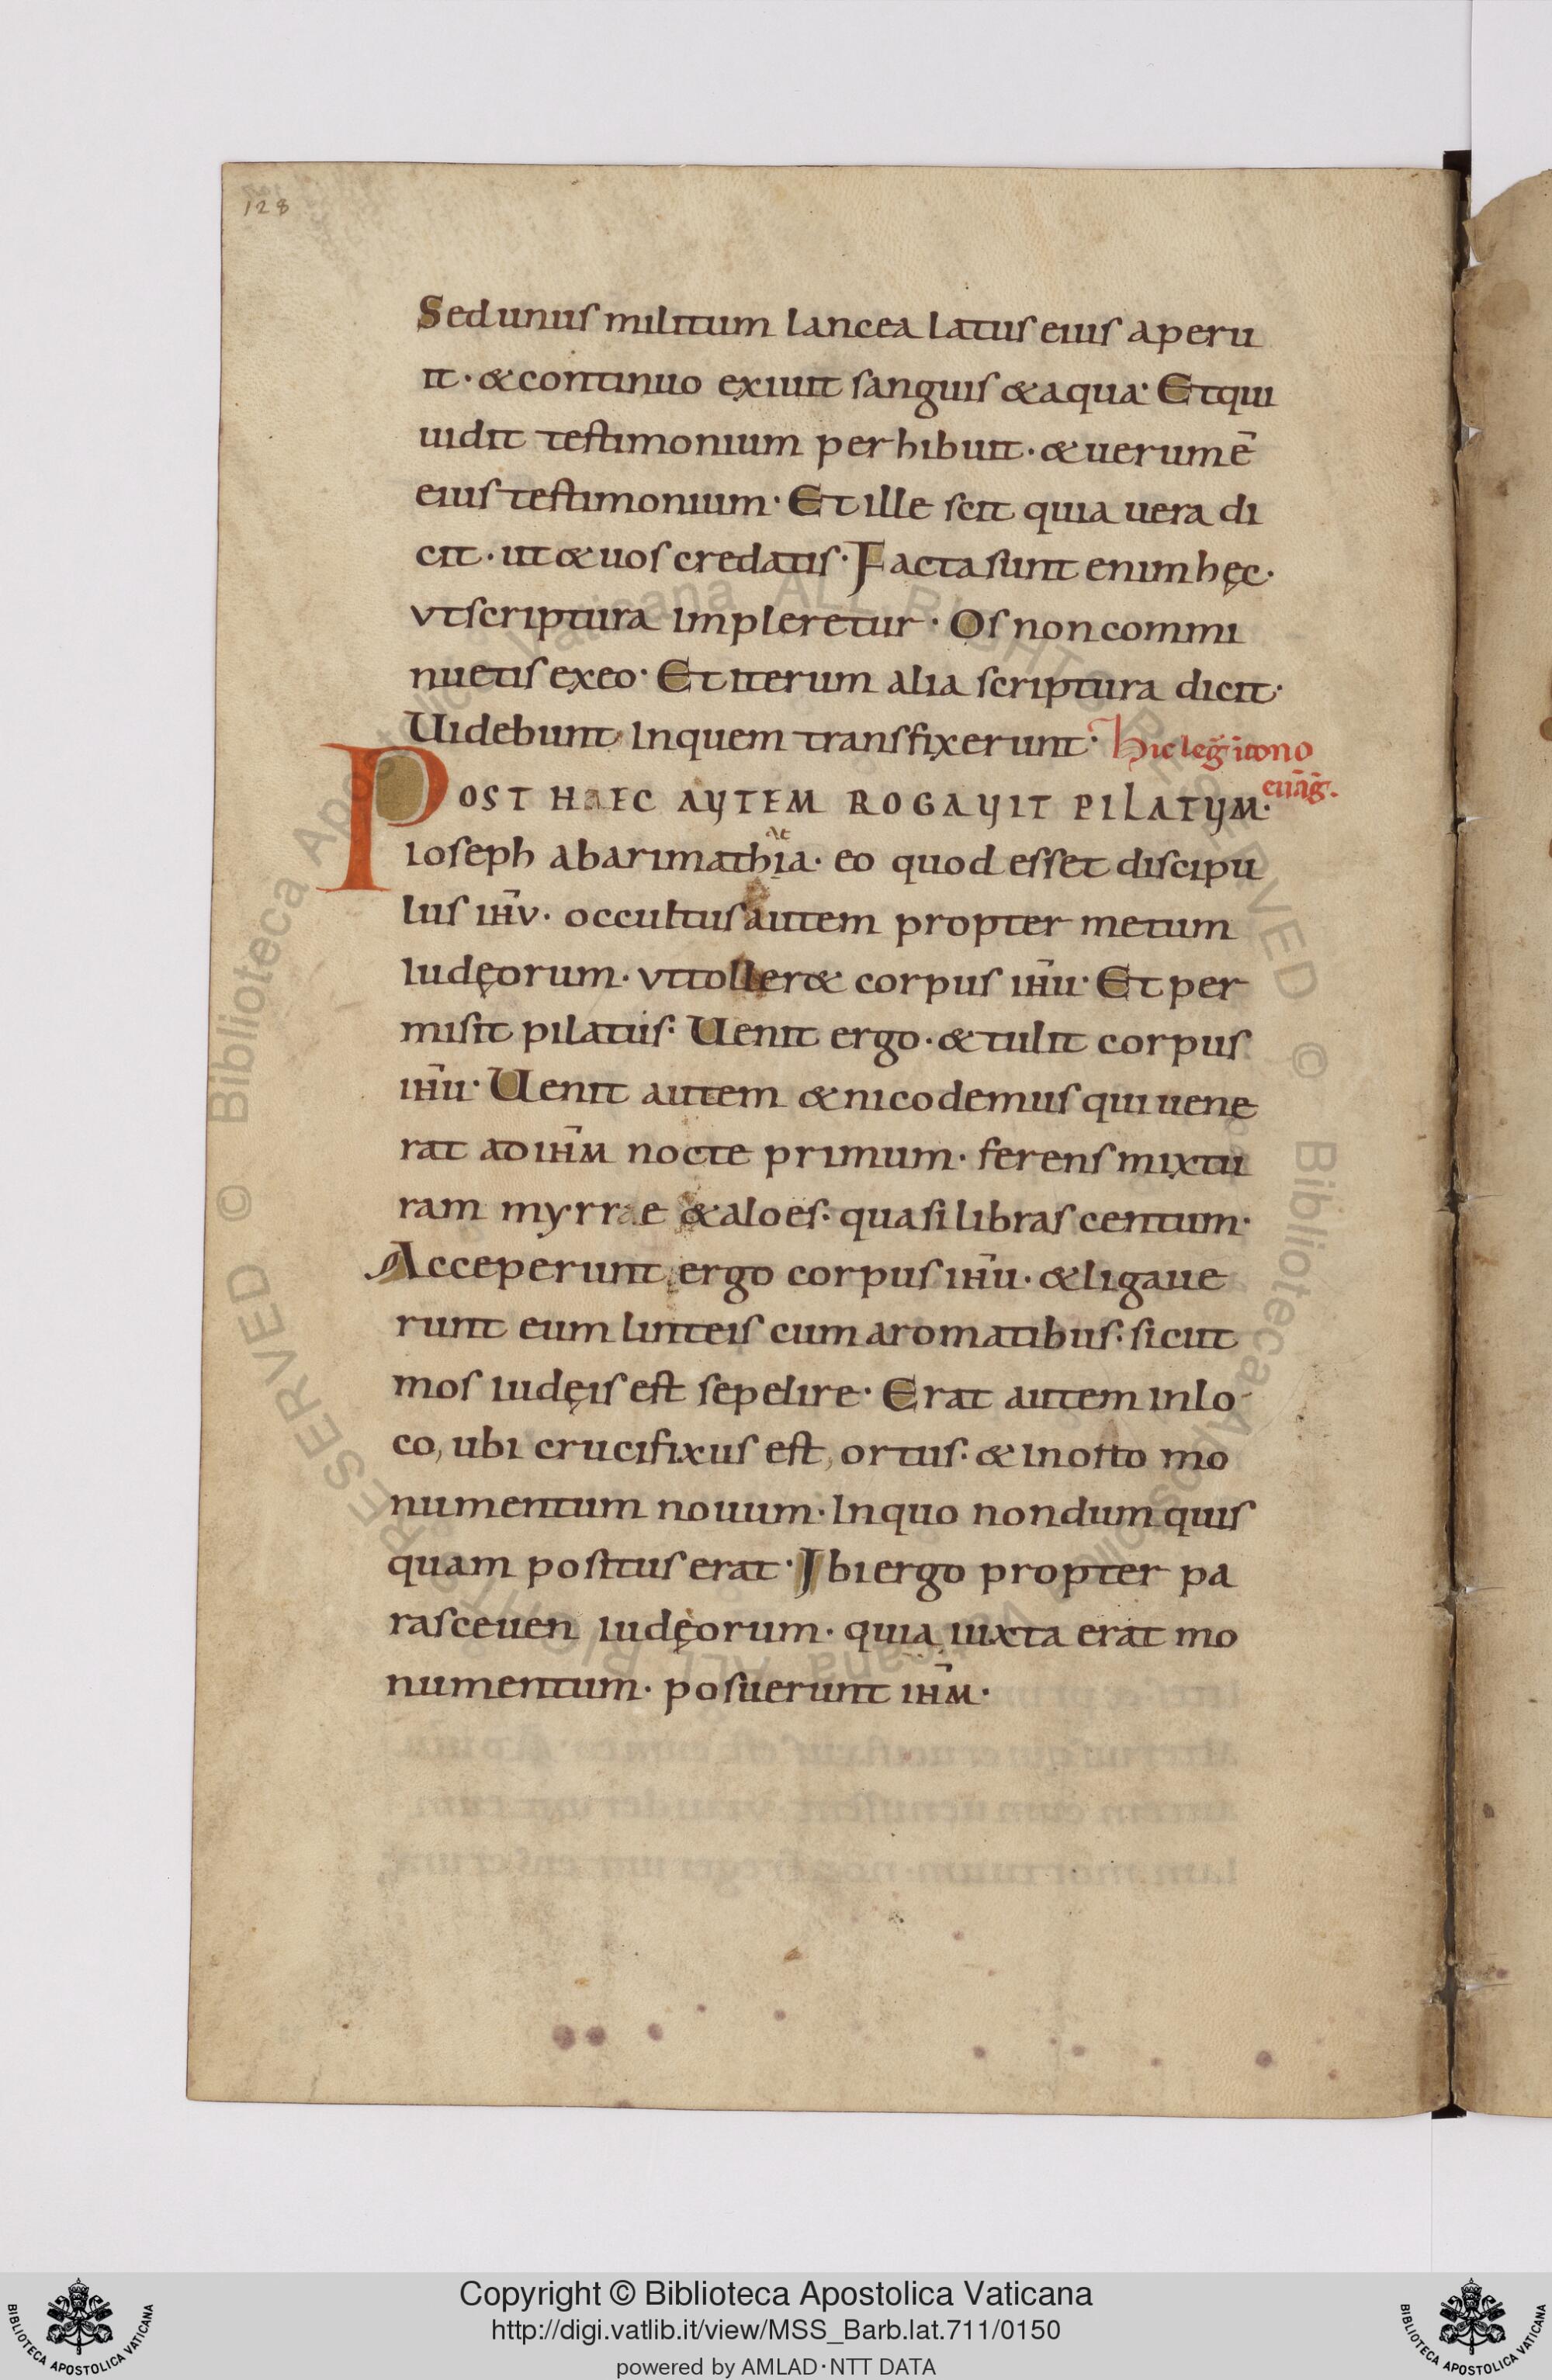 128
Sed unus militum lancea latus eius aperu
it· & continuo exiuit sanguis & aqua· Et qui
uidit testimonium perhibuit· & uerum ē
eius testimonium· Et ille scit quia uera di
cit· ut & uos credatis· Facta sunt enim hęc·
vt scriptura impleretur· Os non commi
nuetis ex eo· Et iterum alia scriptura dicit·
Uidebunt in quem transfixerunt· Hic leḡ in tono
euāḡ.
POST HAEC AUTEM ROGAUIT PILATUM·
ioseph ab arimathia· eo quod esset discipu
lus ihv̄· occultus autem propter metum
iudęorum· vt toller& corpus ihū· Et per
misit pilatus· Uenit ergo· & tulit corpus
ihū· Uenit autem & nicodemus qui uene
rat ad ihm̄ nocte primum· ferens mixtu
ram myrrae & aloes· quasi libras centum·
Acceperunt ergo corpus ihū· & ligaue
runt eum linteis cum aromatibus· sicut
mos iudęis est sepelire· Erat autem in lo
co, ubi crucifixus est, ortus· & in orto mo
numentum nouum· In quo nondum quis
quam positus erat· Ibi ergo propter pa
rasceuen iudęorum· quia iuxta erat mo
numentum· posuerunt ihm̄·
Copyright © Biblioteca Apostolica Vaticana
http://digi.vatlib.it/view/MSS_Barb.lat.711/0150
powered by AMLAD·NTT DATA
BIBLIOTECA APOSTOLICA VATICANA
BIBLIOTECA APOSTOLICA VATICANA
© Biblioteca Apostolica Vaticana ALL RIGHTS RESERVED © Biblioteca Apostolica Vaticana ALL RIGHTS RESERVED